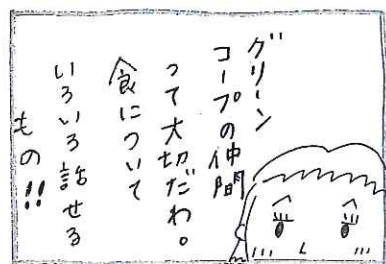 グリーン
コープの仲間
って大切だわ。
食について
いろいろ話せる
もの!!